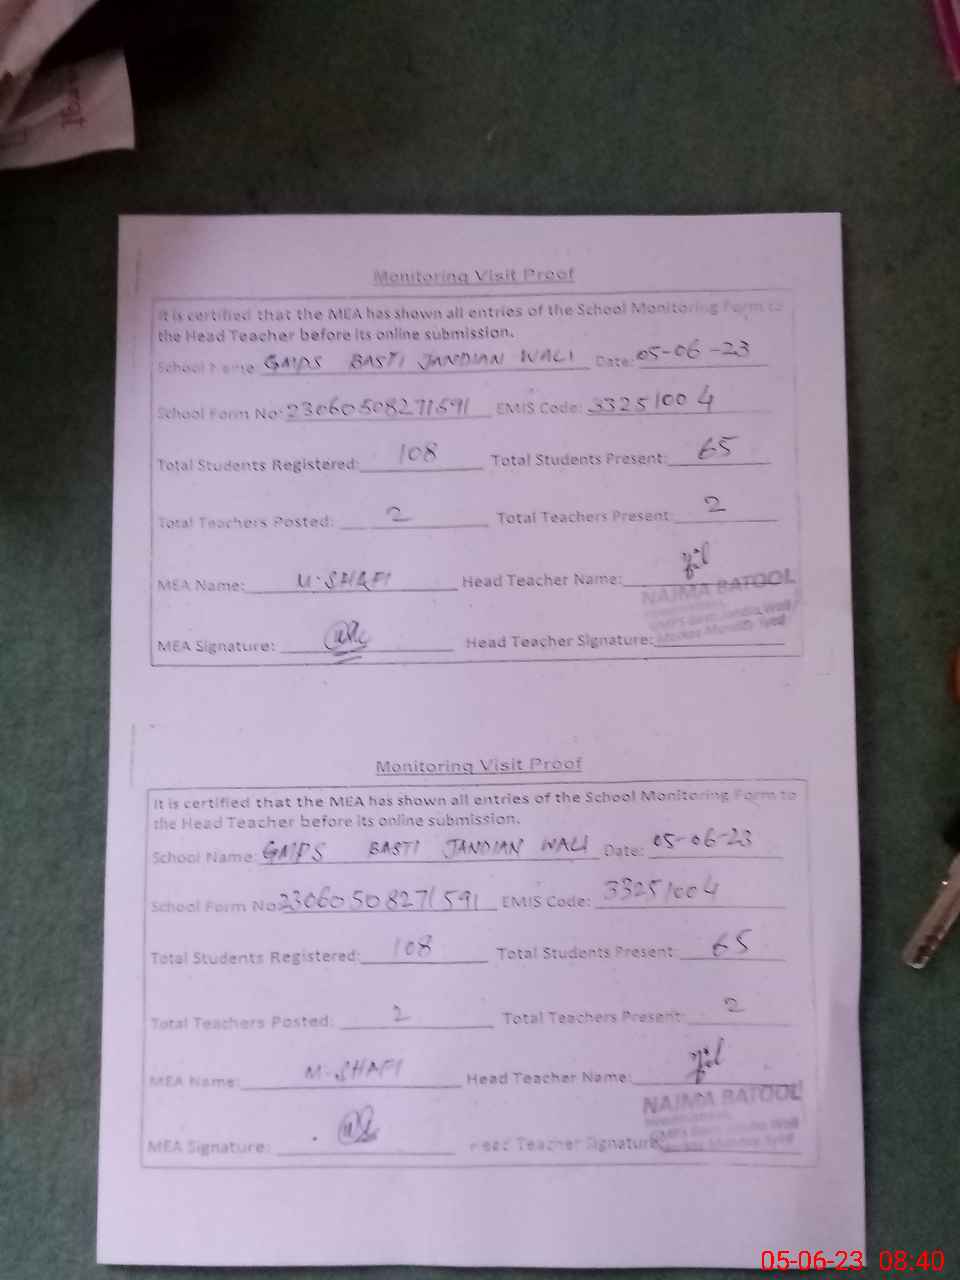 Monitoring Visit Proof
It is certified that the MEA has shown all entries of the School Monitoring Form to
the Head Teacher before its online submission.
School Name: GMPS BASTI JANDIAN WALI Date: 05-06-23
School Form No: 23060508271591 EMIS Code: 33251004
Total Students Registered: 108 Total Students Present: 65
Total Teachers Posted: 2 Total Teachers Present: 2
MEA Name: M. SHAFI Head Teacher Name:
NAJMA BATOOL
MEA Signature: Head Teacher Signature:
Monitoring Visit Proof
It is certified that the MEA has shown all entries of the School Monitoring Form to
the Head Teacher before its online submission.
School Name: GMPS BASTI JANDIAN WALI Date: 05-06-23
School Form No: 23060508271591 EMIS Code: 33251004
Total Students Registered: 108 Total Students Present: 65
Total Teachers Posted: 2 Total Teachers Present: 2
MEA Name: M. SHAFI Head Teacher Name:
NAJMA BATOOL
MEA Signature: Head Teacher Signature:
05-06-23 08:40